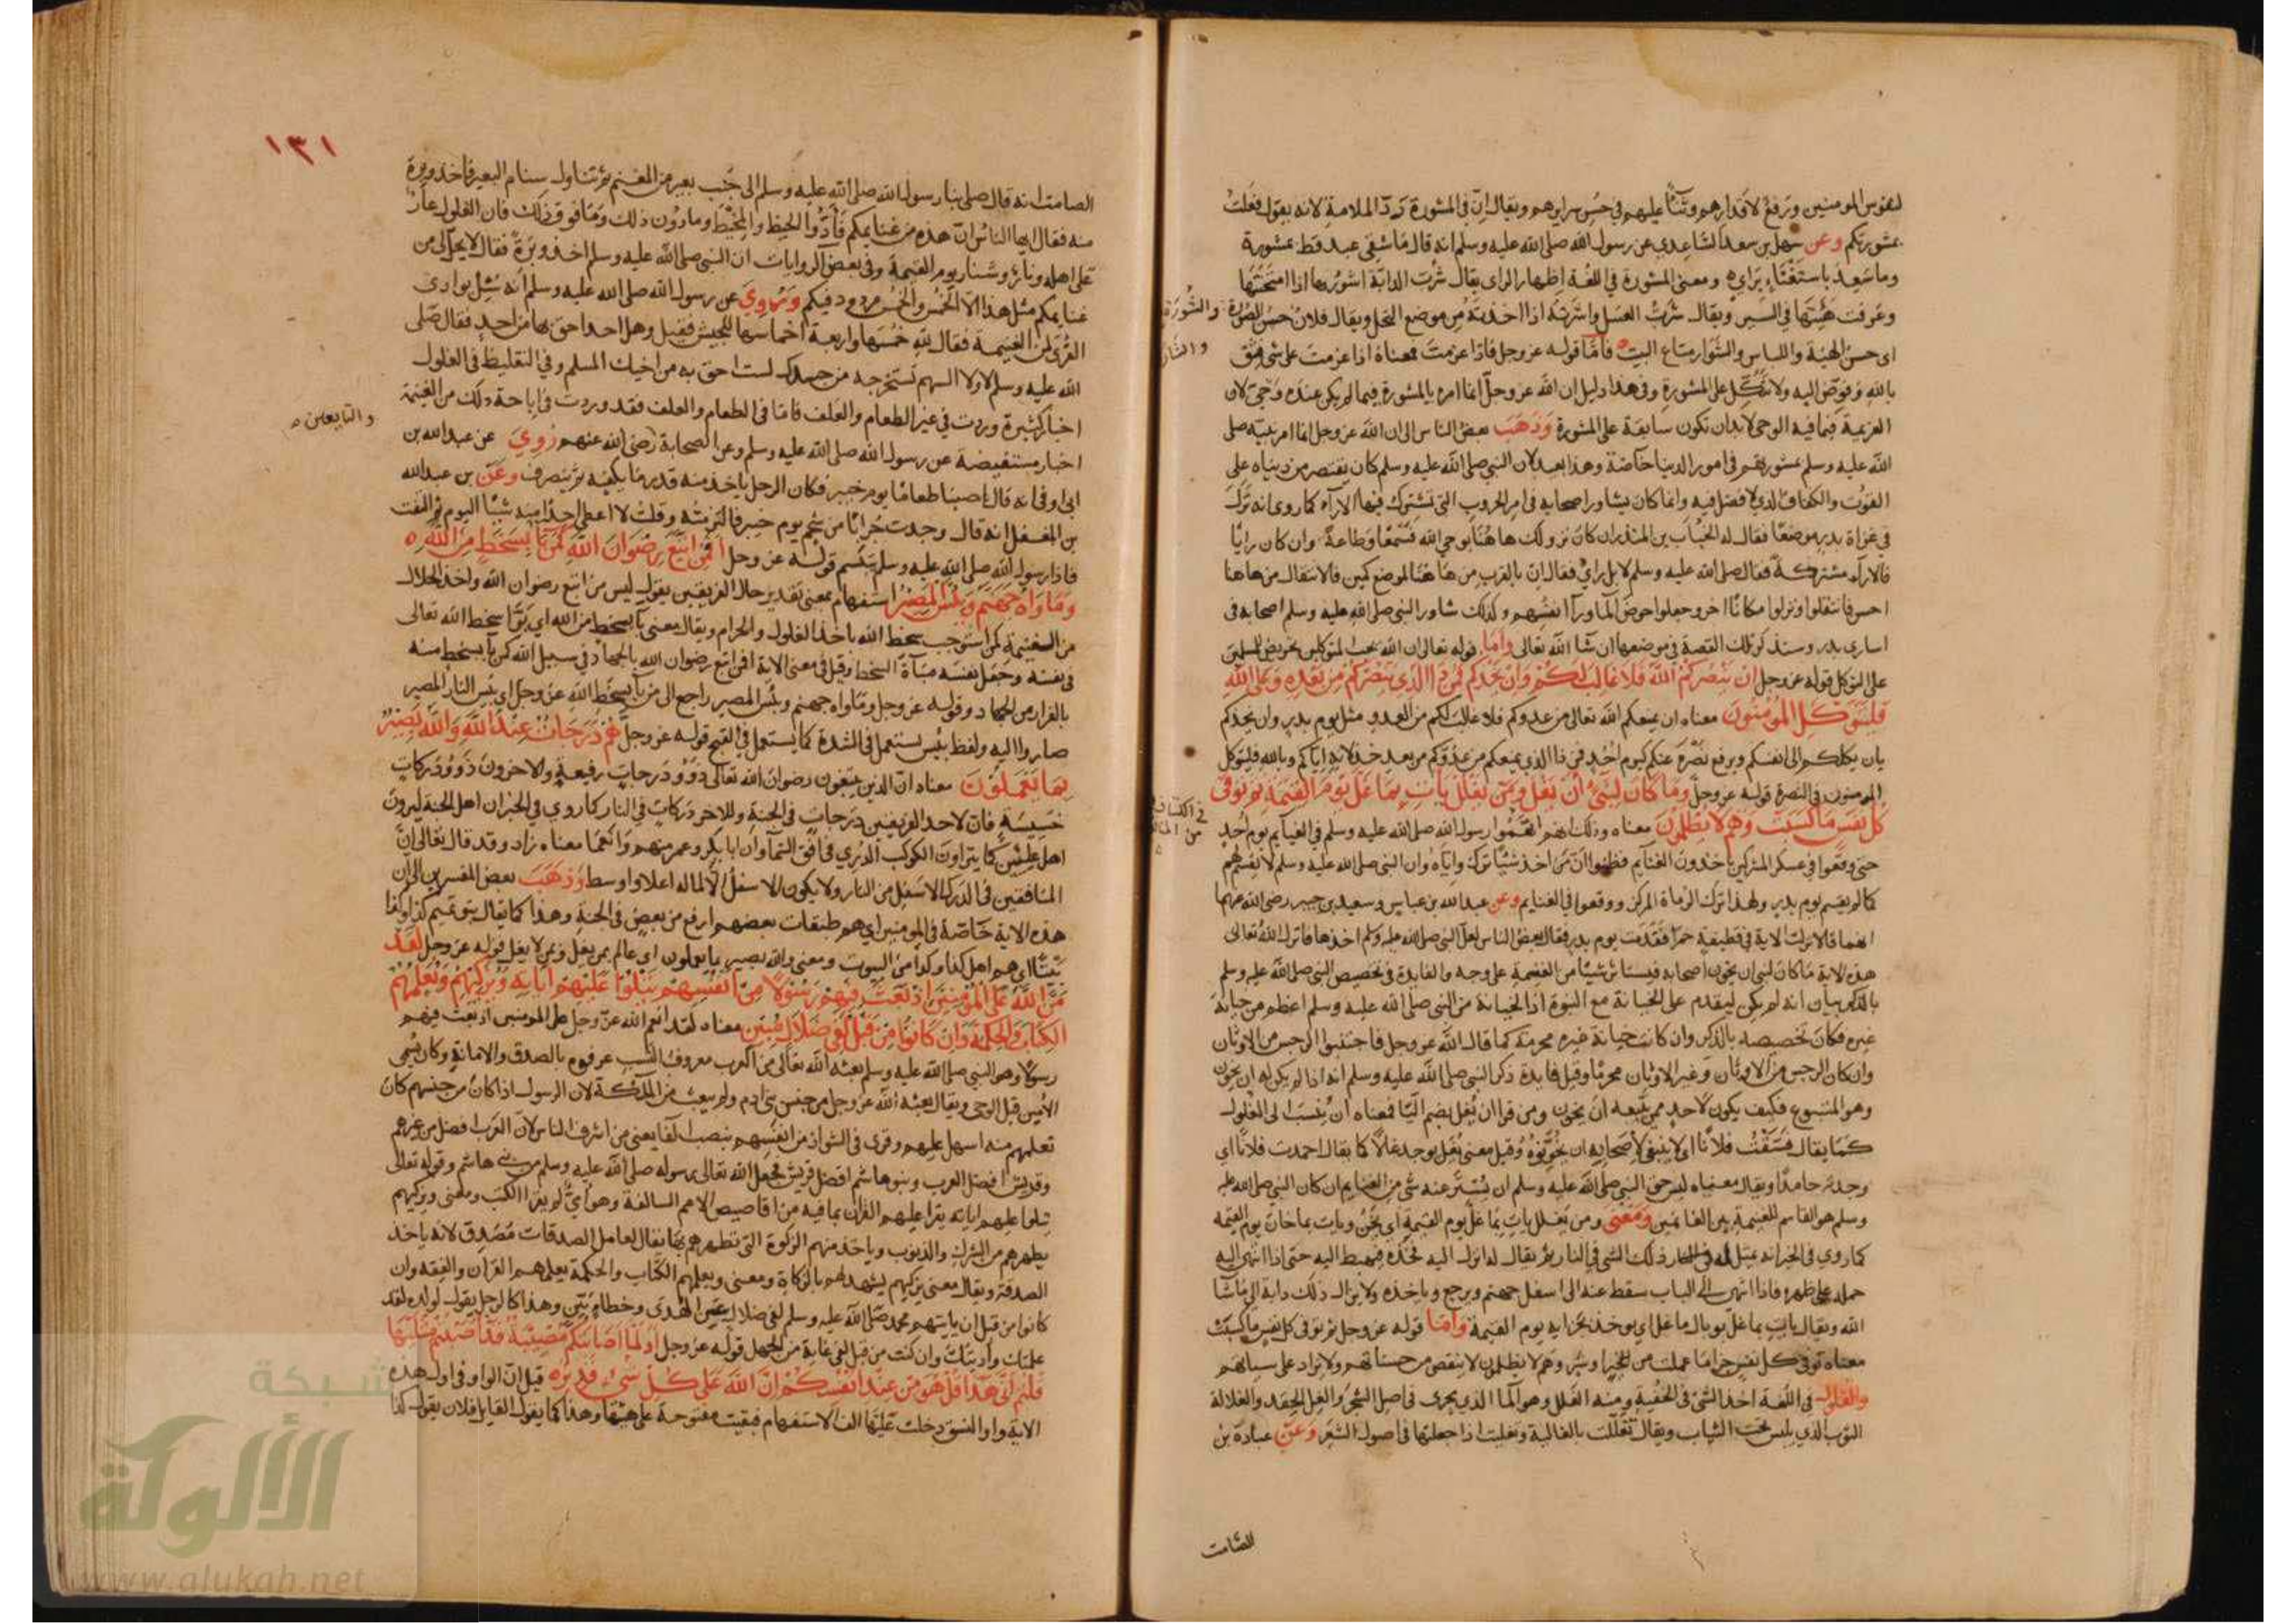 لنفوس المومنين ورفع لاقدارهم وثناً عليهم في حسن سرايرهم ويقال ان في المشورة ردّ الملامة لانه يقول فعلت
بمشورتكم وعن سهل بن سعد الساعدي عن رسول الله صلى الله عليه وسلم انه قال ما شقي عبد قط بمشورة
وما سعد باستغناء براي ومعنى المشورة في اللغة اظهار الراى يقال شرت الدابة اشورها اذا امتحنتها
وعرفت هيئتها في السير ويقال شرت العسل واشرته اذا اخذته من موضع النحل ويقال فلان حسن الصورة والشورة
اى حسن الهيئة واللباس والشوار متاع البيت فامّا قوله عز وجل فاذا عزمت فمعناه اذا عزمت على شئ فثق
بالله وفوّض اليه ولا تتكل على المشورة وفي هذا دليل ان الله عز وجل انما امره بالمشورة فيما لم يكن عنده وحي لان
العزيمة فيما فيه الوحى لا بد ان تكون سابقة على المشورة وذهب بعض الناس الى ان الله عز وجل انما امر نبيه صلى
الله عليه وسلم بمشورتهم في امور الدنيا خاصة وهذا بعيد لان النبي صلى الله عليه وسلم كان يقتصر من دنياه على
القوت والكفاف الذي لا فضل فيه وانما كان يشاور اصحابه في امر الحروب التي تشترك فيها الاراء كما روى انه ترك
في غزاة بدر موضعا فقال له الحباب بن المنذر ان كان نزولك هاهنا بوحي الله فسمعا وطاعة وان كان رايا
فالاراء مشتركة فقال صلى الله عليه وسلم لا بل راي فقال ان بالقرب من هاهنا لموضع كمين فالانتقال من هاهنا
احسن فانتقلوا ونزلوا مكانا اخر وجعلوا حوض الما ورا انفسهم وكذلك شاور النبي صلى الله عليه وسلم اصحابه في
اسارى بدر وسنذكر تلك القصة في موضعها ان شا الله تعالى واما قوله تعالى ان الله يحب المتوكلين تحريض للمسلمين
على التوكل قوله عز وجل ان ينصركم الله فلا غالب لكم وان يخذلكم فمن ذا الذي ينصركم من بعده وعلى الله
فليتوكل المومنون معناه ان يمنعكم الله تعالى من عدوكم فلا غالب لكم من العدو مثل يوم بدر وان يخذلكم
بان يكلكم الى انفسكم ويرفع نصره عنكم كيوم احد فمن ذا الذي يمنعكم من عدوكم من بعد خذلانه اياكم وبالله فليتوكل
المومنون في النصرة قوله عز وجل وما كان لنبي ان يغل ومن يغلل يات بما غل يوم القيمة ثم توفى
كل نفس ما كسبت وهم لا يظلمون معناه وذلك انهم اتهموا رسول الله صلى الله عليه وسلم في الغنايم يوم احد
حتى وقعوا في عسكر المشركين ياخذون الغنايم فظنوا ان من اخذ شيئا ترك واياه وان النبي صلى الله عليه وسلم لا يقسم لهم
كما لم يقسم يوم بدر ولهذا ترك الرماة المركز ووقعوا في الغنايم وعن عبد الله بن عباس وسعيد بن جبير رضي الله عنهما
انهما قالا نزلت الاية في قطيفة حمرا فقدت يوم بدر فقال بعض الناس لعل النبي صلى الله عليه وسلم اخذها فانزل الله تعالى
هذه الاية ما كان لنبي ان يخون اصحابه فيستاثر شيئا من الغنيمة على وجه والفايدة في تخصيص النبي صلى الله عليه وسلم
بالذكر بيان انه لم يكن ليقدم على الخيانة مع النبوة اذ الخيانة من النبي صلى الله عليه وسلم اعظم من خيانة
غيره فكان تخصيصه بالذكر وان كانت خيانة غيره محرمة كما قال الله عز وجل فاجتنبوا الرجس من الاوثان
وان كان الرجس من الاوثان وغير الاوثان محرما وقيل فايدة ذكر النبي صلى الله عليه وسلم انه اذا لم يكن له ان يخون
وهو المتبوع فكيف يكون لاحد ممن يتبعه ان يخون ومن قرا ان يغل بضم اليا فمعناه ان ينسب الى الغلول
كما يقال فسّقت فلانا اى لا ينبغي لاصحابه ان يخونوه وقيل معنى يغل يوجد غالا كما يقال احمدت فلانا اي
وجدته حامدا ويقال معنياه ليس حق النبي صلى الله عليه وسلم ان يستر عنه شي من الغنايم ان كان النبي صلى الله عليه
وسلم هو القاسم للغنيمة بين الغانمين ومعنى ومن يغلل يات بما غل يوم القيمة اي يخن ويات بما خان يوم القيمة
كما روي في الخبر انه يمثل له ذلك الشى في النار ثم يقال له انزل اليه فخذه فيهبط اليه حتى اذا انتهى اليه
حمله على ظهره فاذا انتهى الى الباب سقط عنه الى اسفل جهنم ويرجع وياخذه ولا يزال ذلك دابه الى ما شا
الله ويقال يات بما غل بوبال ما غل اي يوخذ بجزايه يوم القيمة واما قوله عز وجل ثم توفى كل نفس ما كسبت
معناه توفى كل نفس جزا ما عملت من الخير او شر وهم لا يظلمون لا ينقص من حسناتهم ولا يزاد على سياتهم
والغلول في اللغة اخذ الشئ في الخفية ومنه الغلل وهو الما الذي يجرى في اصل الشجر والغل الحقد والغلالة
الثوب الذي يلبس تحت الثياب ويقال تغللت بالغالية وتغليت اذا جعلتها في اصول الشعر وعن عبادة بن
الصامت
١٣١
الصامت انه قال صلى بنا رسول الله صلى الله عليه وسلم الى جنب بعير من المغنم ثم تناول سنام البعير فاخذ وبرة
منه فقال ايها الناس ان هذه من غنايمكم فأدّوا الخيط والمخيط وما دون ذلك وما فوق ذلك فان الغلول عار
على اهله ونار وشنار يوم القيمة وفي بعض الروايات ان النبي صلى الله عليه وسلم اخذ وبرة فقال لا يحل لي من
غنايمكم مثل هذا الا الخمس والخمس مردود فيكم وروي عن رسول الله صلى الله عليه وسلم انه سئل بوادى
القرى لمن الغنيمة فقال لله خمسها واربعة اخماسها للجيش فقيل وهل احد احق بها من احد فقال صلى
الله عليه وسلم لا ولا السهم تستخرجه من جسدك لست احق به من اخيك المسلم وفي التغليظ في الغلول
اخبار كثيرة وردت في غير الطعام والعلف فاما في الطعام والعلف فقد وردت في اباحة ذلك من الغنيمة
اخبار مستفيضة عن رسول الله صلى الله عليه وسلم وعن الصحابة رضى الله عنهم روي عن عبد الله بن
والتابعين
ابى اوفى انه قال اصبنا طعاما يوم خيبر فكان الرجل ياخذ منه قدر ما يكفيه ثم ينصرف وعن بن عبد الله
بن المغفل انه قال وجدت جرابا من شحم يوم خيبر فالتزمته وقلت لا اعطي احدا منه شيئا اليوم ثم التفت
فاذا رسول الله صلى الله عليه وسلم يتبسم قوله عز وجل افمن اتبع رضوان الله كمن با بسخط من الله
وماواه جهنم وبئس المصير استفهام بمعنى تقدير حال الفريقين يقول ليس من اتبع رضوان الله واخذ الحلال
من الغنيمة كمن استوجب سخط الله باخذ الغلول والحرام ويقال معنى با بسخط من الله اي بوّا سخط الله تعالى
في نفسه وجعل نفسه مباة السخط وقيل في معنى الاية افمن اتبع رضوان الله بالجهاد في سبيل الله كمن با بسخط منه
بالفرار من الجهاد وقوله عز وجل وماواه جهنم وبئس المصير راجع الى من با بسخط الله عز وجل اي بئس النار المصير
صاروا اليه ولفظ بئس يستعمل في الشدة كما يستعمل في القبح قوله عز وجل هم درجات عند الله والله بصير
بما يعملون معناه ان الذين يتبعون رضوان الله تعالى ذوو درجات رفيعة والاخرون ذوو دركات
خسيسة فان لاحد الفريقين درجات في الجنة وللاخر دركات في النار كما روي في الخبر ان اهل الجنة ليرون
اهل عليين كما يتراون الكوكب الدري في افق السما وان ابا بكر وعمر منهم وانعما معناه زاد وقد قال تعالى ان
المنافقين في الدرك الاسفل من النار ولا يكون الاسفل الا لما له اعلا واوسط وذهب بعض المفسرين الى ان
هذه الاية خاصة في المومنين اي هم طبقات بعضهم ارفع من بعض في الجنة وهذا كما يقال بنو تميم كذا وكذا
بيتا اى هم اهل كذا وكذا من البيوت ومعنى والله بصير بما يعملون اي عالم بمن يغل وبمن لا يغل قوله عز وجل لقد
منّ الله على المومنين اذ بعث فيهم رسولا من انفسهم يتلوا عليهم اياته ويزكيهم ويعلمهم
الكتاب والحكمة وان كانوا من قبل لفي ضلال مبين معناه لقد انعم الله عز وجل على المومنين اذ بعث فيهم
رسولا وهو النبي صلى الله عليه وسلم بعثه الله تعالى من العرب معروف النسب عرفوه بالصدق والامانة وكان يسمى
الامين قبل الوحى ويقال بعثه الله عز وجل من جنس بنى ادم ولم يبعث من الملائكة لان الرسول اذا كان من جنسهم كان
تعلمهم منه اسهل عليهم وقرى في الشواذ من انفسهم بنصب الفا يعني من اشرف الناس لان العرب افضل من غيرهم
وقريش افضل العرب وبنو هاشم افضل قريش فجعل الله تعالى رسوله صلى الله عليه وسلم من بنى هاشم وقوله تعالى
يتلوا عليهم اياته يقرا عليهم القران بما فيه من اقاصيص الامم السالفة وهو اميّ لم يقرا الكتب ومعنى ويزكيهم
يطهرهم من الشرك والذنوب وياخذ منهم الزكوة التي تطهرهم بها يقال لعامل الصدقات مصدق لانه ياخذ
الصدقة ويقال معنى يزكيهم يشهد لهم بالزكاة ومعنى ويعلمهم الكتاب والحكمة يعلمهم القران والفقه وان
كانوا من قبل ان ياتيهم محمد صلى الله عليه وسلم لفي ضلال عن الهدى وخطاء بيّن وهذا كالرجل يقول لولده لقد
علمتك وأدبتك وان كنت من قبل لفي غاية من الجهل قوله عز وجل او لما اصابتكم مصيبة قد اصبتم مثليها
قلتم انى هذا قل هو من عند انفسكم ان الله على كل شى قدير قيل ان الواو في اول هذه
الاية واو النسق دخلت عليها الف الاستفهام فبقيت مفتوحة على هيئتها وهذا كما يقول القايل فلان يقول كذا
شبكة
الألوكة
www.alukah.net